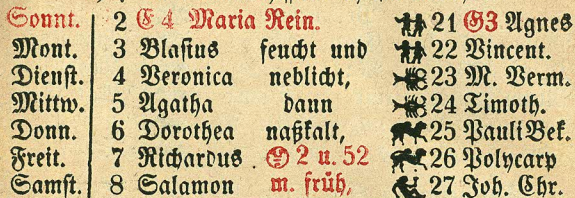 Sonnt. 2 E 4 Maria Rein. 21 G3 Agnes
Mont. 3 Blasius feucht und 22 Vincent.
Dienst. 4 Veronica neblicht, 23 M. Verm.
Mittw. 5 Agatha dann 24 Timoth.
Donn. 6 Dorothea naßkalt, 25 Pauli Bek.
Freit. 7 Richardus 2 u. 52 26 Polycarp
Samst. 8 Salamon m. früh, 27 Joh. Chr.